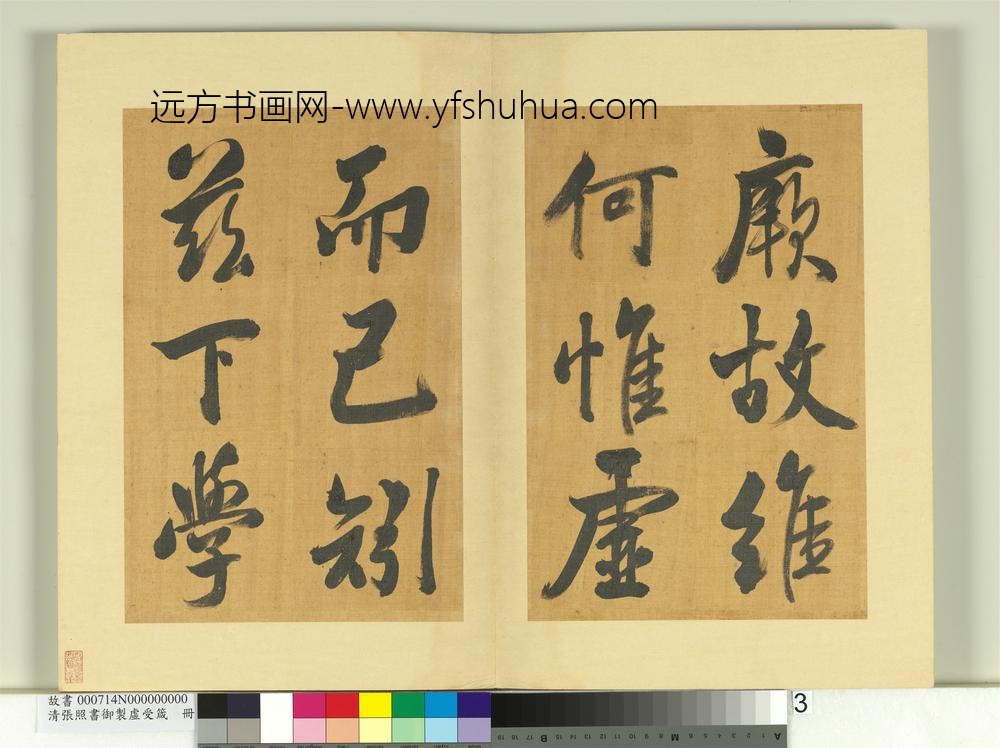 远方书画网-www.yfshuhua.com
厥故維
何惟虛
而已矧
茲下學
故書 000714N000000000
清張照書御製虛受箴 冊
3